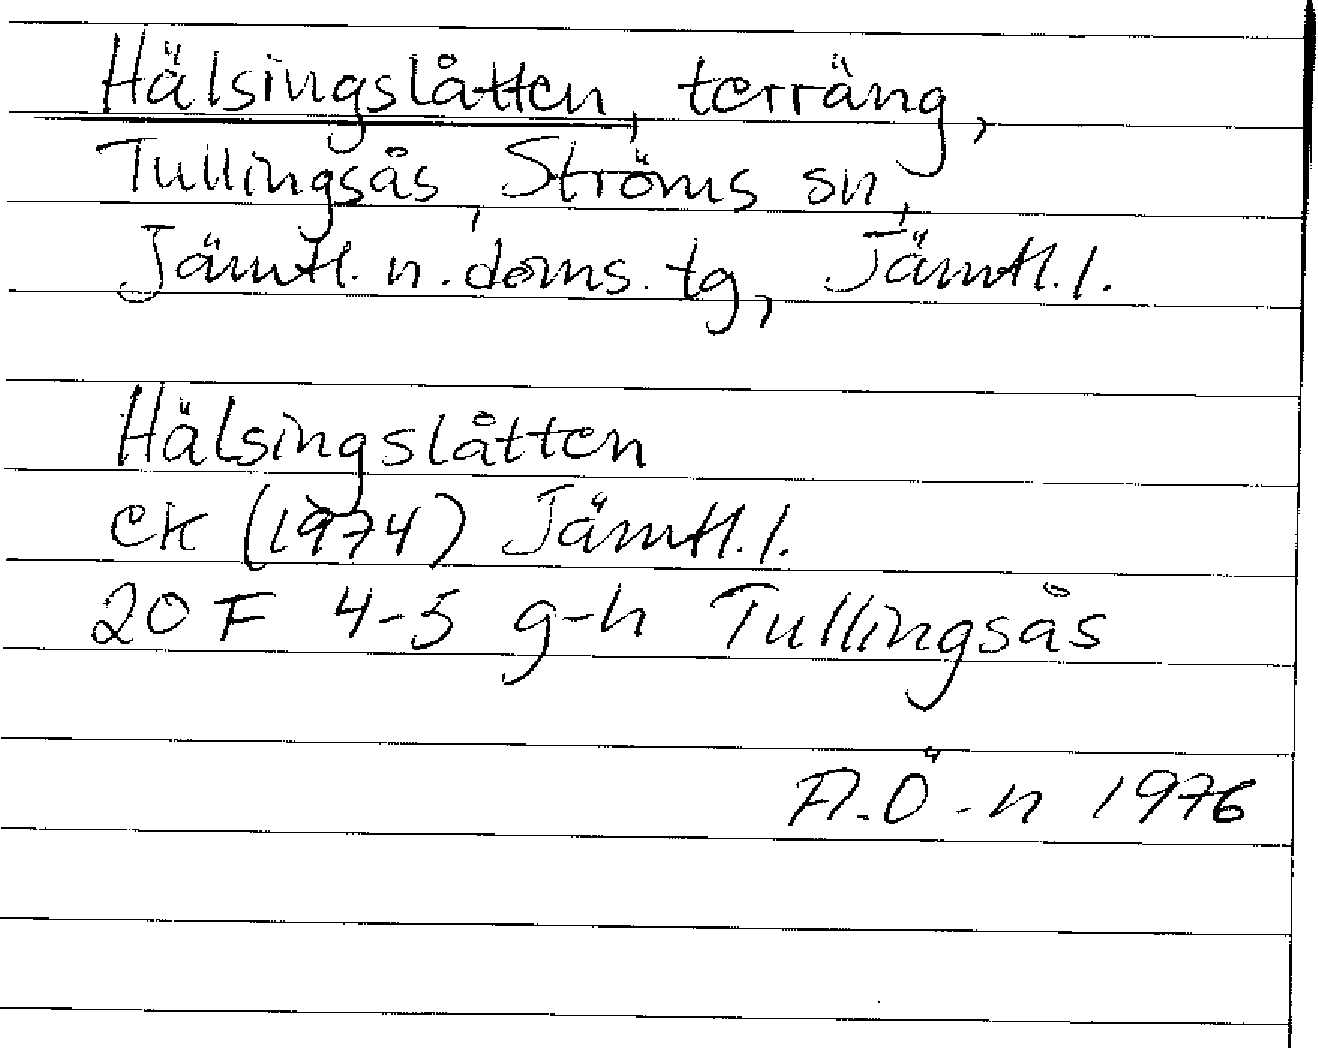 Hälsingslåtten, terräng,
Tullingsås, Ströms sn,
Jämtl. n. doms. tg, Jämtl. l.
Hälsingslåtten
ek (1974) Jämtl. l.
20 F 4-5 g-h Tullingsås
A.Ö-n 1976